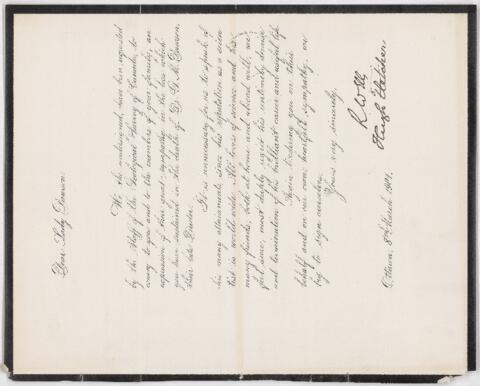 Dear Lady Dawson:
We the undersigned, have been requested
by the Staff of the Geological Survey of Canada, to
convey to you and to the members of your family, an
expression of their great sympathy in the loss which
you have sustained in the death of Dr. G. M. Dawson,
their late Director.
It is unnecessary for us to speak of
his many attainments, since his reputation as a scien
tist is world wide. All lovers of science and his
many friends, both at home and abroad will, we
feel sure, most deeply regret his untimely demise
and termination of his brilliant career and useful life.
Again tendering you on their
behalf and on our own, heartfelt sympathy, we
beg to sign ourselves
Yours very sincerely,
R W Ells
Hugh Fletcher.
Ottawa, 8th March 1901.